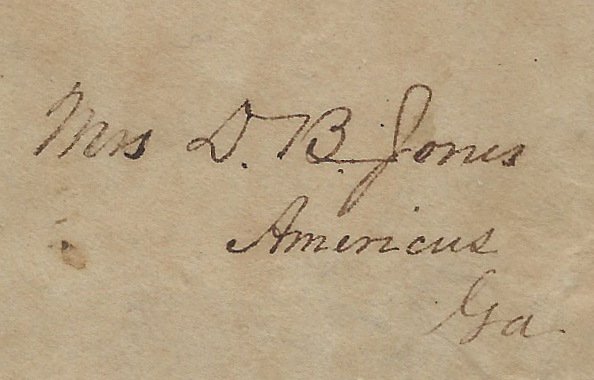 Mrs D. B. Jones
Americus
Ga